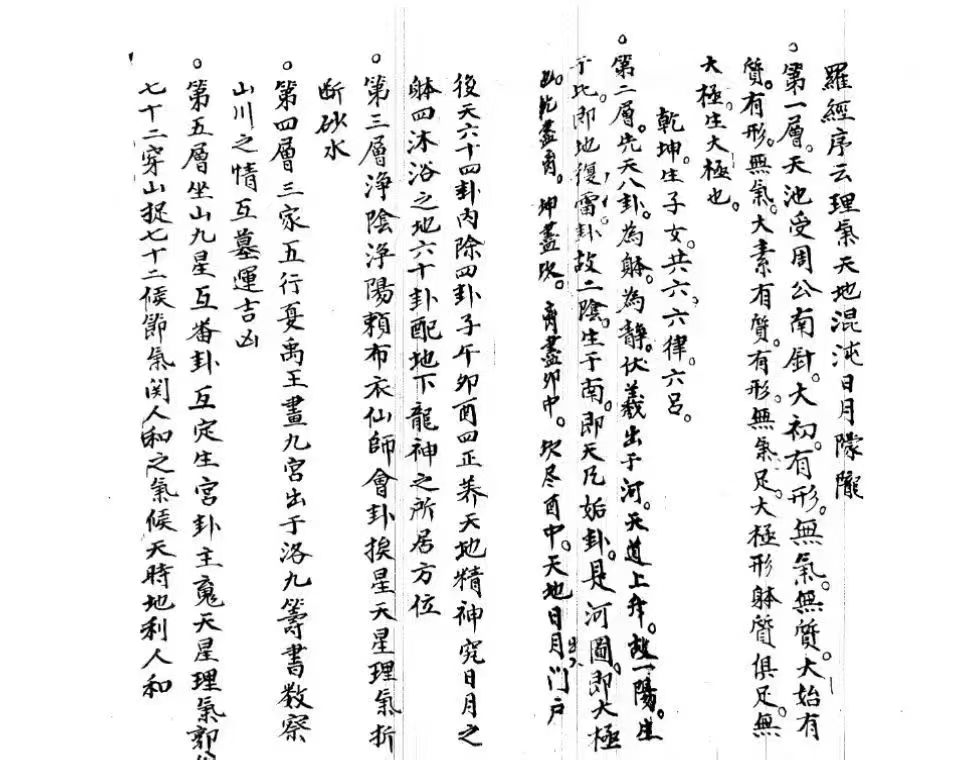 羅經序云理氣天地混沌日月朦朧
。第一層。天池受周公南針。大初。有形。無氣。無質。大始有
質。有形。無氣。大素有質。有形。無氣足。大極形躰質俱足。無
大極。生大極也。
乾坤。生子女。共六。六律。六呂。
。第二層。先天八卦。為躰。為靜。伏羲出于河。天道上升。故一陽。生
于北。即地復雷卦。故二陰。生于南。即天凡姤卦。是河圖。即大極
乾盡離。坤盡坎。離盡卯中。坎尽酉中。天地日月出入门户
後天六十四卦內除四卦子午卯酉四正养天地精神究日月之
躰四沐浴之地六十卦配地下龍神之所居方位
。第三層淨陰淨陽頼布衣仙師會卦挨星天星理氣折
断砂水
。第四層三家五行夏禹王畫九宮出于洛九籌書数察
山川之情互墓運吉凶
。第五層坐山九星互畨卦互定生宮卦主魔天星理氣郭
七十二穿山捉七十二候節氣関人和之氣候天時地利人和